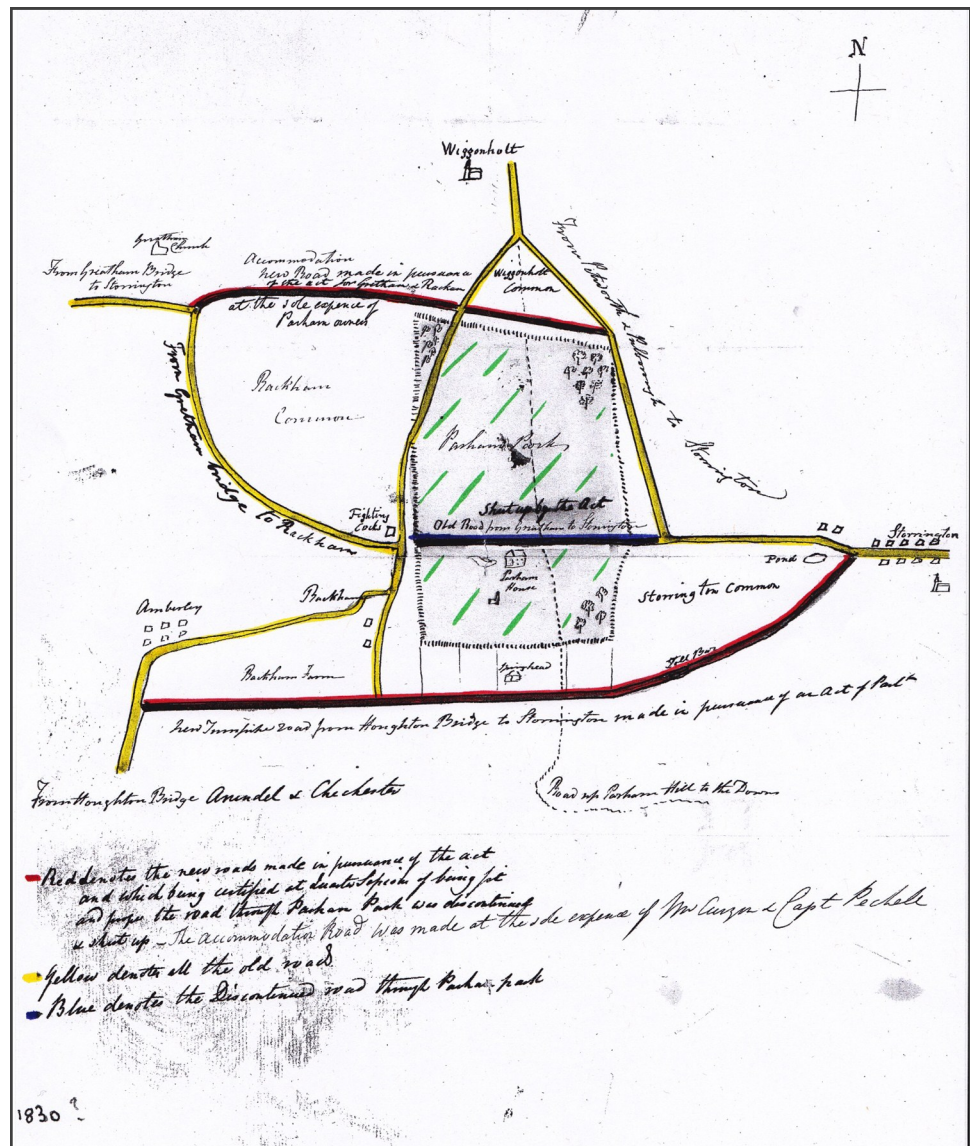 N
Wiggonholt
Greatham
Church
From Greatham Bridge
to Storrington
Accommodation
new Road made in pursuance
of the act for Gretham & Racham
at the sole expence of
Parham owners
Wiggonholt
Common
From Petworth & Pulborough to Storrington
Rackham
Common
From Gretham bridge to Rackham
Parham Park
Shut up by the Act
Old Road from Greatham to Storrington
Fighting
Cocks
Storrington
Pond
Parham
House
Storrington Common
Rackham
Amberley
Rackham Farm
Springhead
Toll Bar
new Turnpike road from Houghton Bridge to Storrington made in pursuance of an Act of Parlt
From Houghton Bridge Arundel & Chichester
Road up Parham Hill to the Downs
Red denotes the new roads made in pursuance of the act
and which being certified at Quarter Sessions of being fit
and proper the road through Parham Park was discontinued
& shut up - The Accommodation Road was made at the sole expence of Mr Curzon & Capt Pechell
Yellow denotes all the old roads
Blue denotes the Discontinued road through Parham park
1830 ?